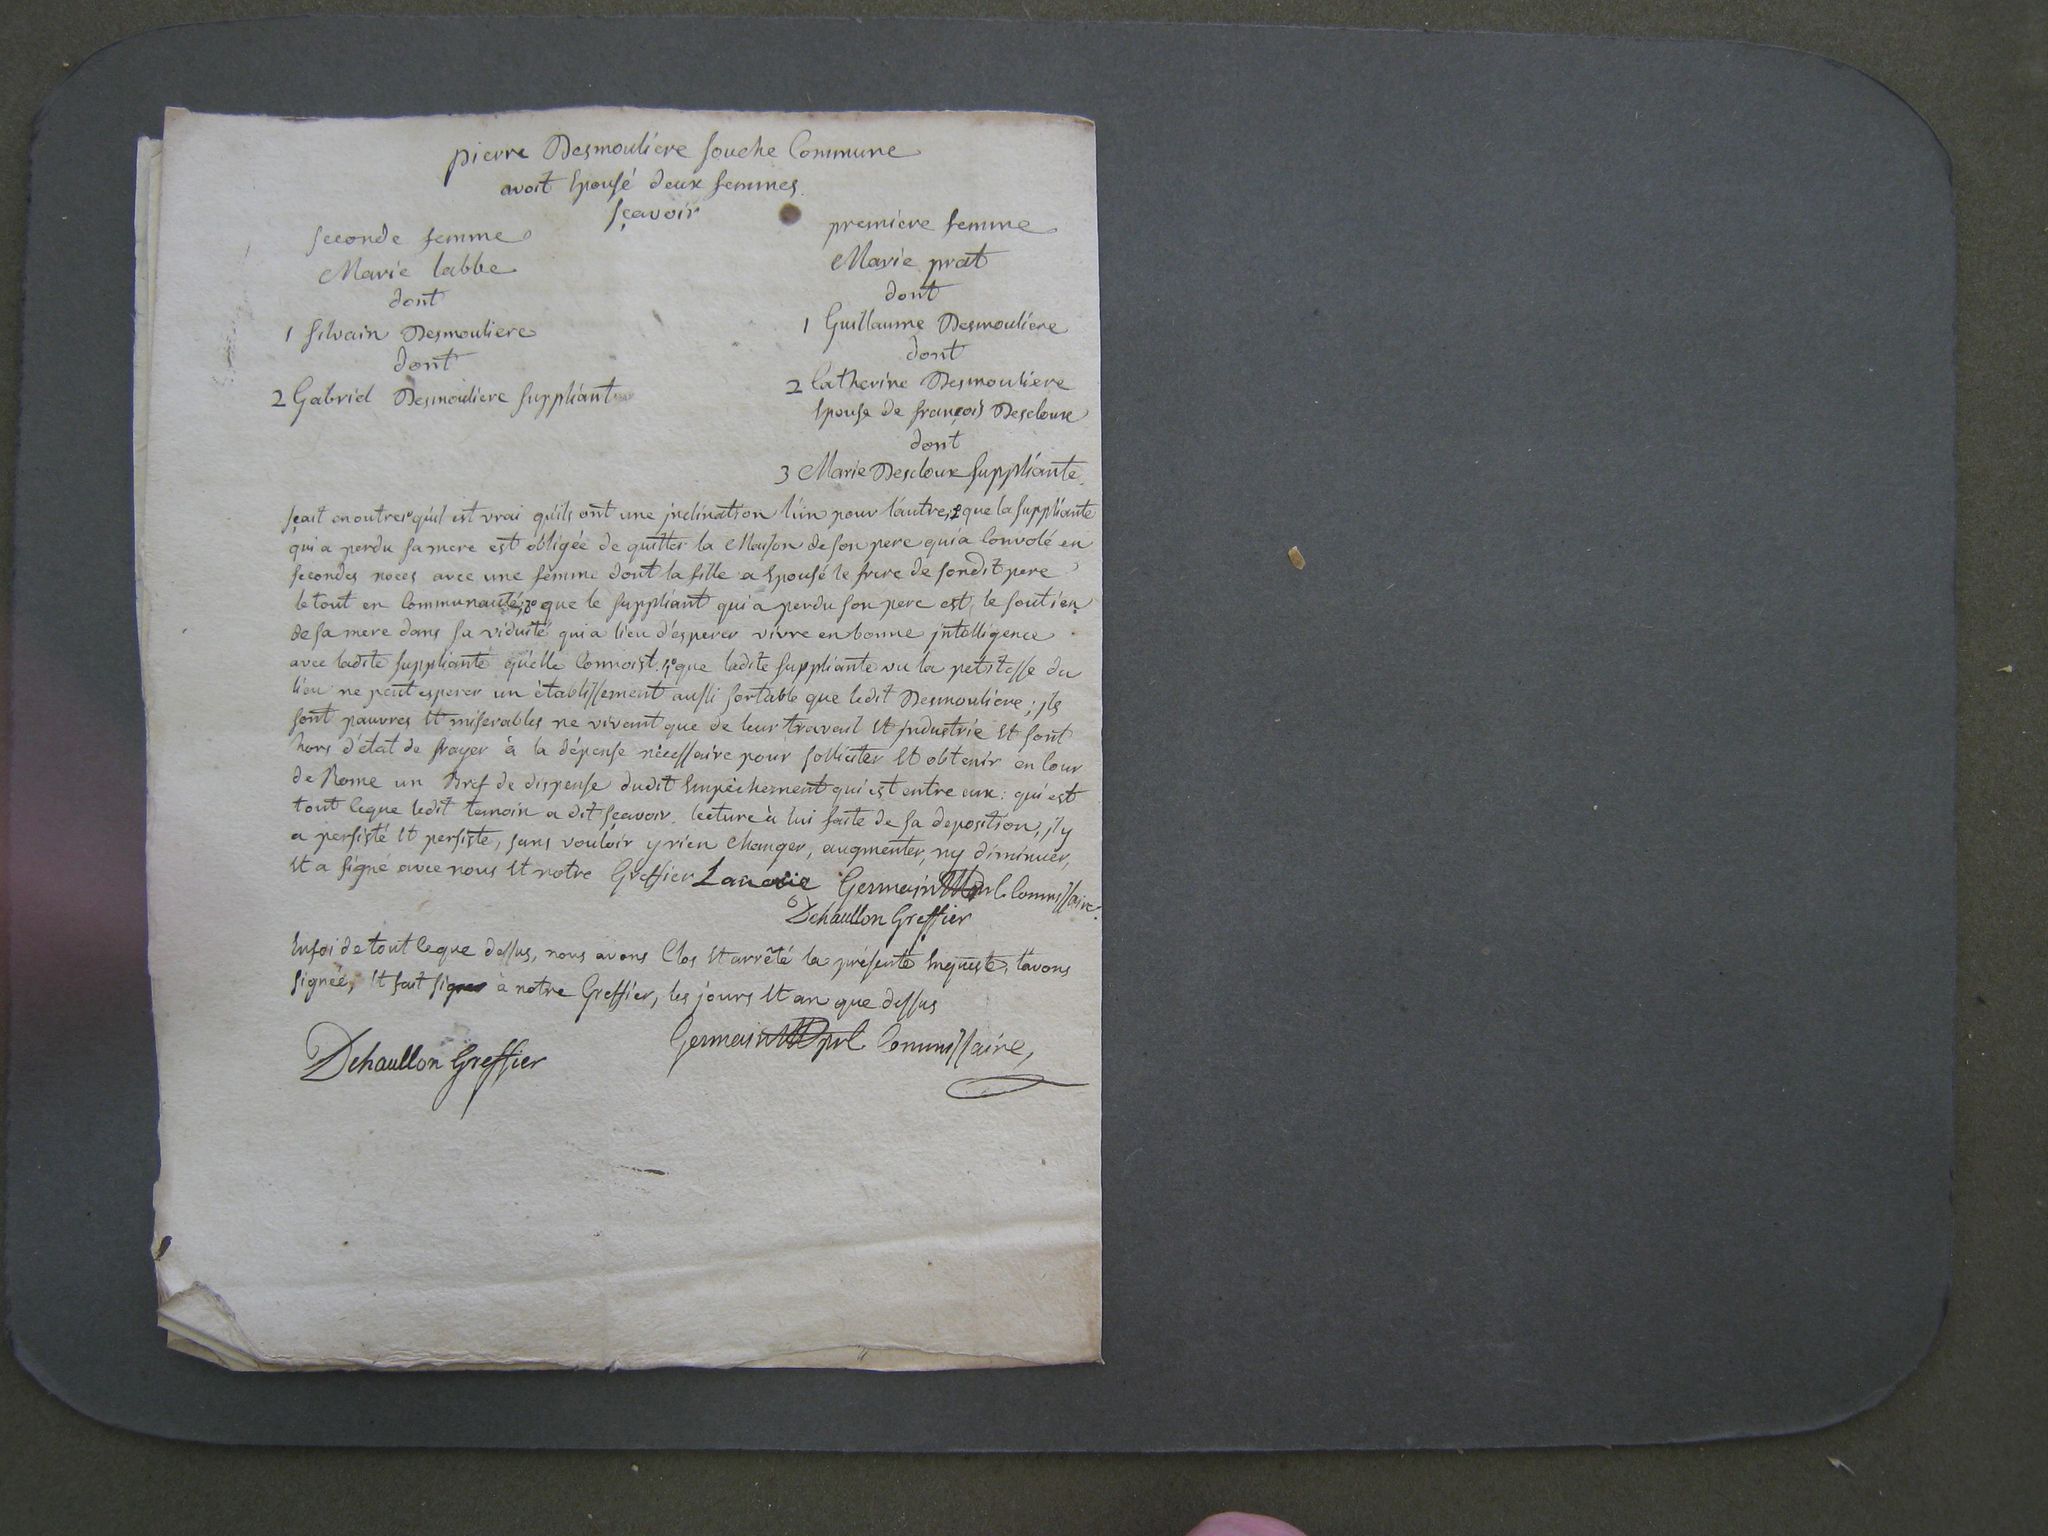 pierre Desmouliere souche Commune
avoit Epousé deux femmes
sçavoir
seconde femme
Marie labbe
dont
1 silvain Desmouliere
dont
2 Gabriel Desmouliere suppliant
premiere femme
Marie prat
dont
1 Guillaume Desmouliere
dont
2 Catherine Desmouliere
Epouse de françois Descloux
dont
3 Marie Descloux suppliante.
sçait en outre 1° qu'il est vrai qu'ils ont une jnclination l'un pour l'autre; 2° que la suppliante
qui a perdu sa mere est obligée de quitter la Maison de son pere qui a Convolé en
secondes noces avec une femme dont la fille a Epousé le frere de sondit pere
le tout en Communauté; 3° que le suppliant qui a perdu son pere est le soutien
de sa mere dans sa viduité qui a lieu d'esperer vivre en bonne jntelligence
avec ladite suppliante qu'elle Connoist. 4° que ladite suppliante vu la petitesse du
lieu ne peut esperer un établissement aussi sortable que ledit Desmouliere; jls
sont pauvres Et miserables ne vivant que de leur travail Et jndustrie Et sont
hors d'état de frayer à la dépense nécessaire pour solliciter Et obtenir en Cour
de Rome un Bref de dispense dudit Empêchement qui est entre eux: qui est
tout Ceque ledit temoin a dit sçavoir. lecture à lui faite de sa deposition, jl y
a persisté Et persiste, sans vouloir y rien Changer, augmenter, ny diminuer,
Et a signé avec nous Et notre Greffier Germain Commissaire.
Dehaullon Greffier
Enfoi de tout Ceque dessus, nous avons Clos Et arrêté la présente Enqueste, l'avons
signée, Et fait signer à notre Greffier, les jours Et an que dessus
Germain Commissaire,
Dehaullon Greffier